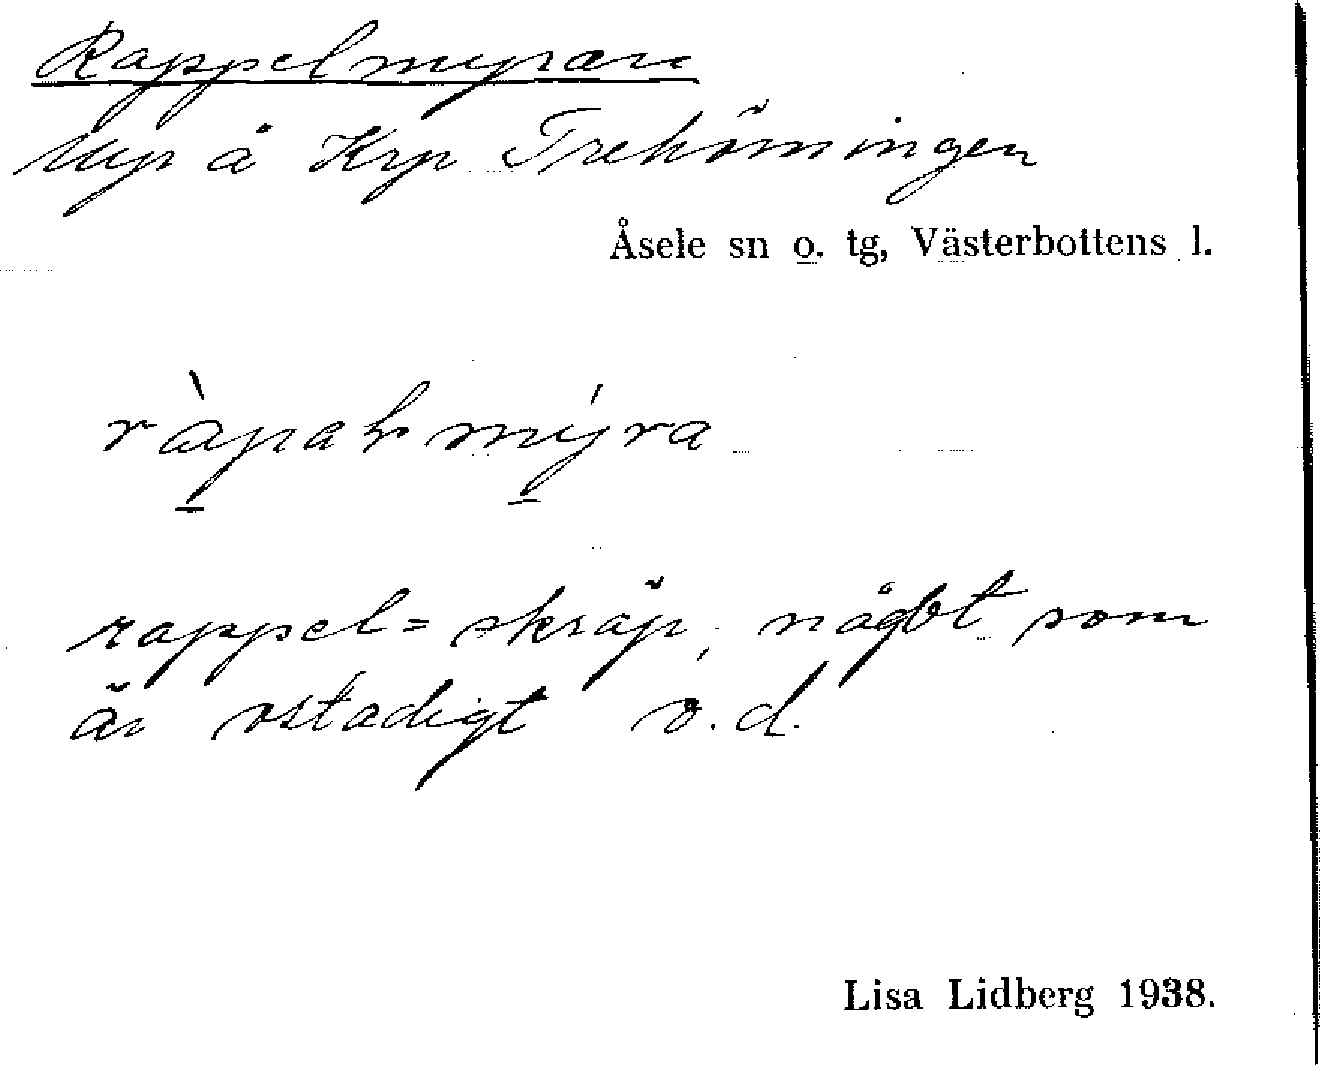 Rappelmyran
Myr å Krp Trehörningen
Åsele sn o. tg, Västerbottens l.
ràpalmýra
rappel = skräp, något som
är ostadigt o.d.
Lisa Lidberg 1938.